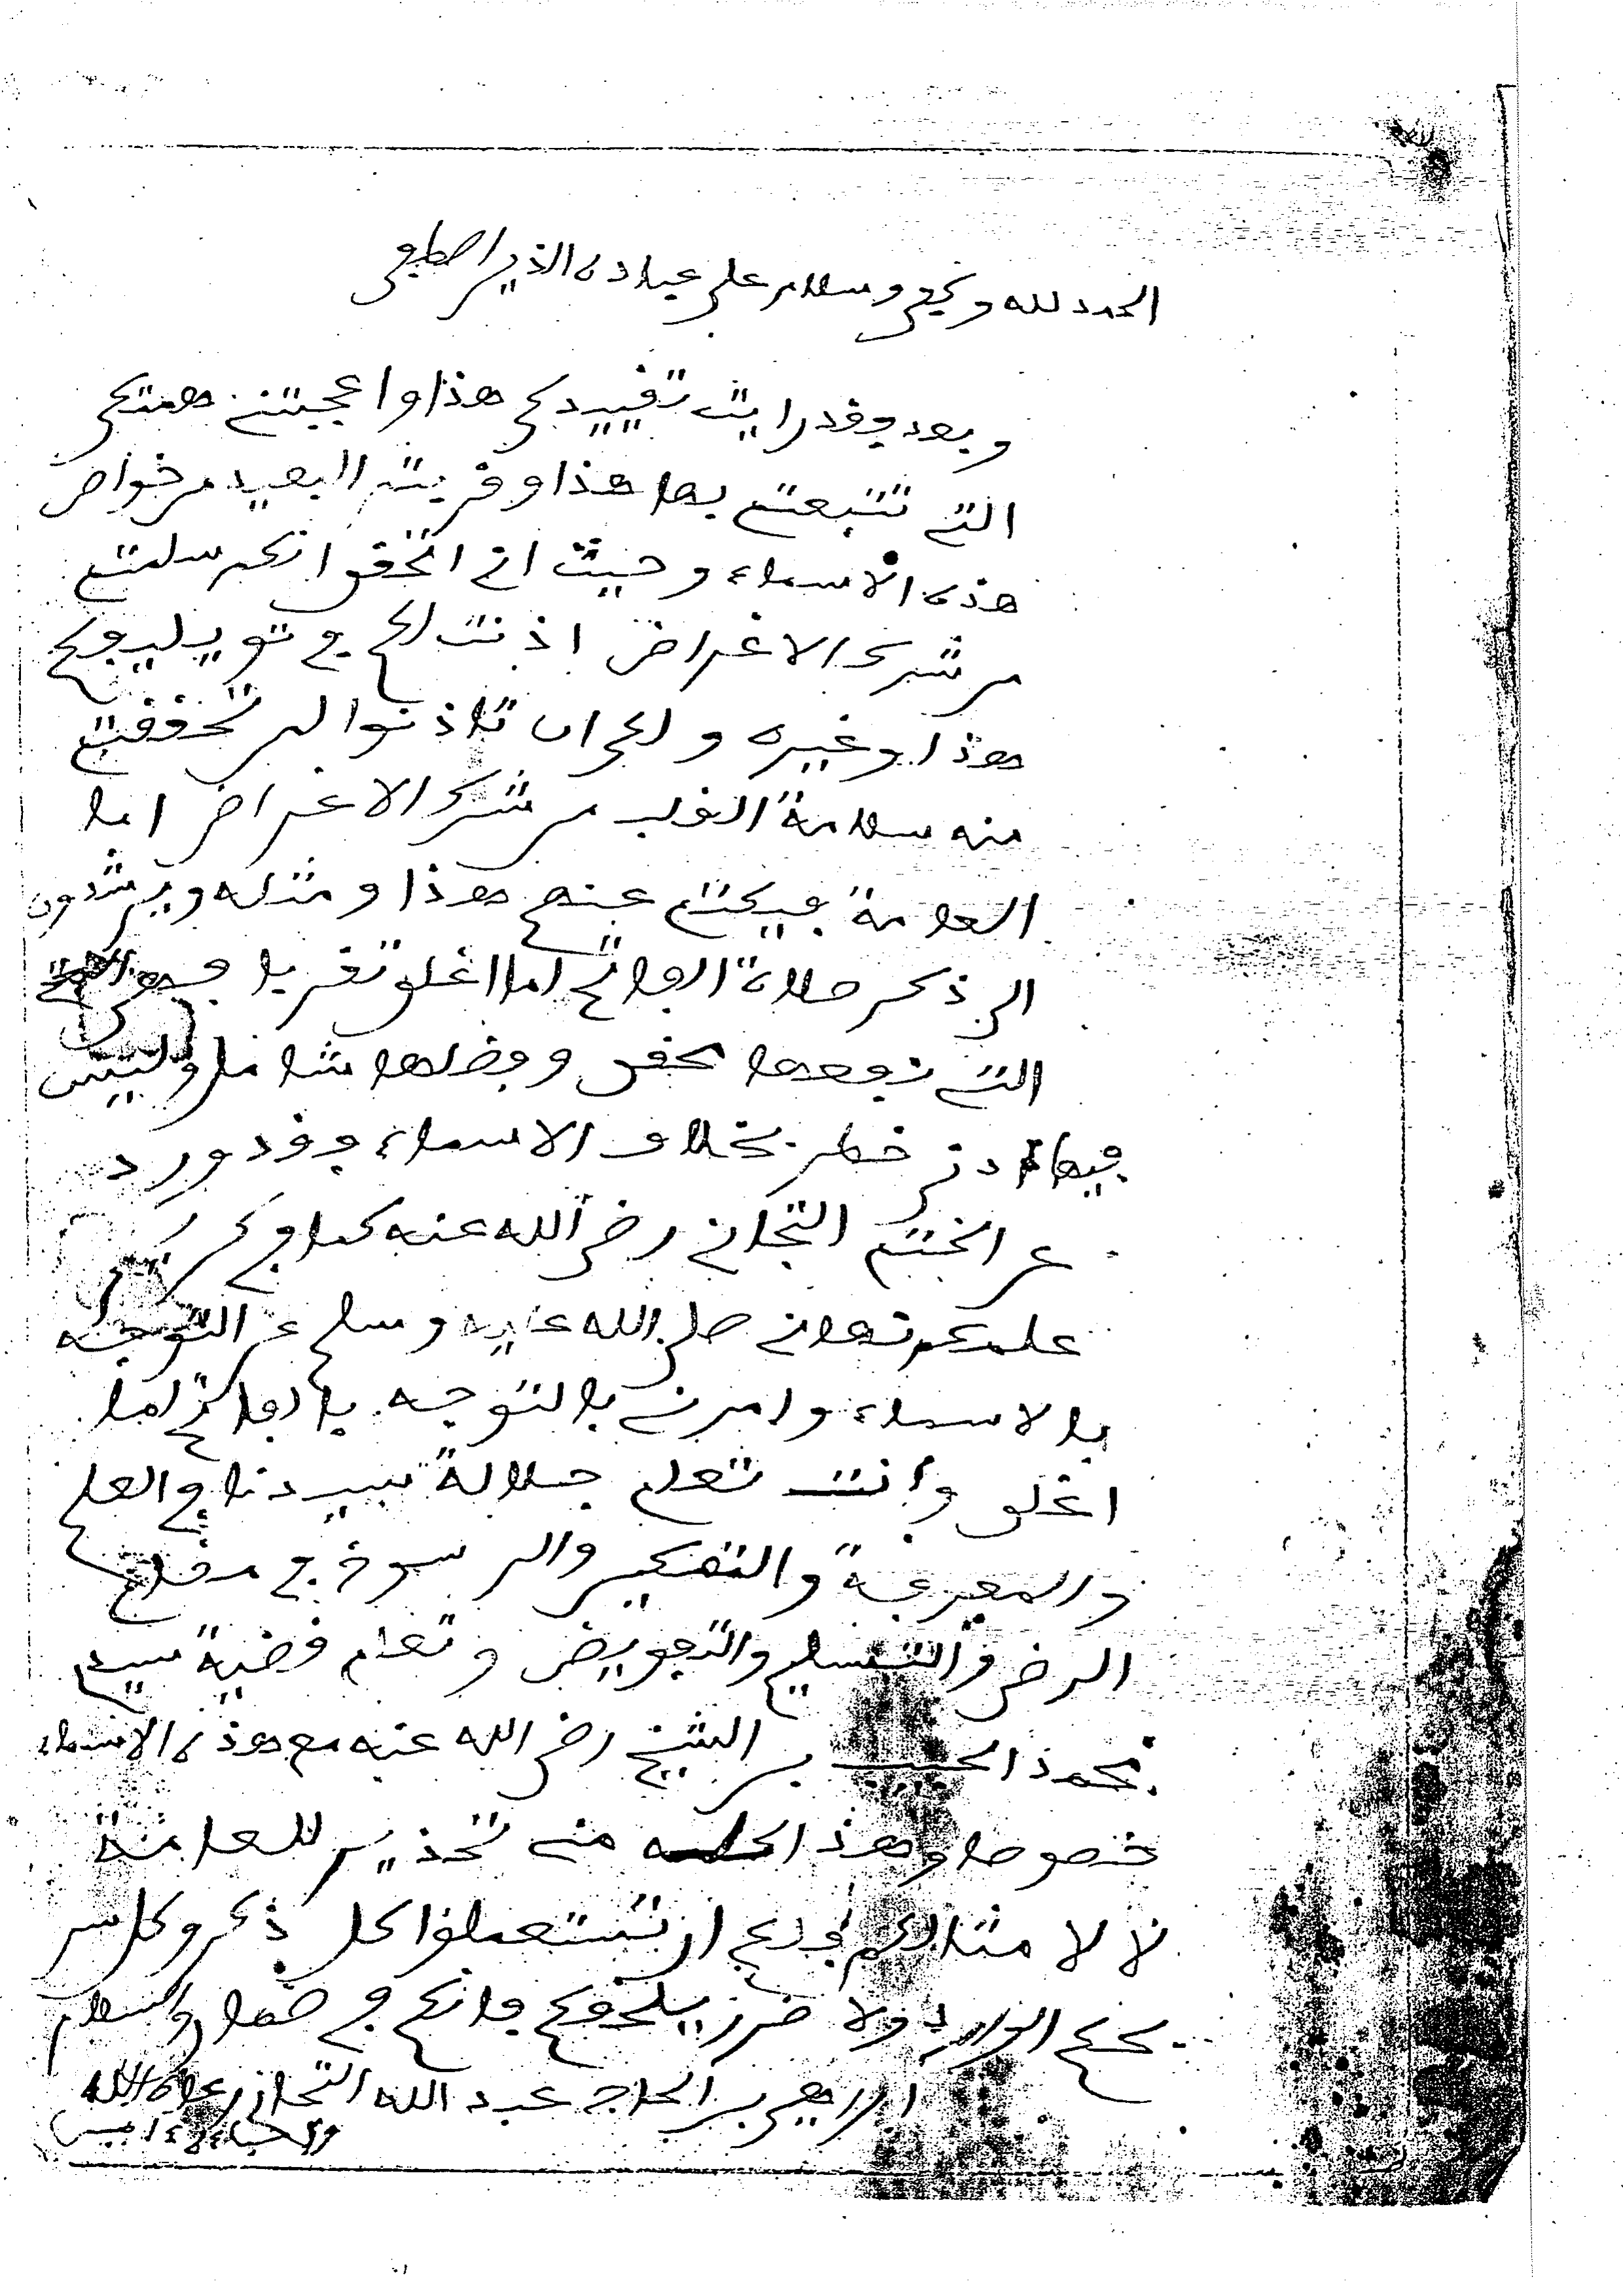 الحمد لله وكفى وسلام على عباده الذين اصطفى
وبعد فقد رايت تقييدكم هذا واعجبتني همتكم
التي تتبعت بها هذا وقربت البعيد من خواص
هذه الاسماء وحيث اني اتحقق انكم سلمتم
من شرك الاغراض اذنت لكم في توليفكم
هذا وغيره ولكم ان تاذنوا لمن تحققتم
منه سلامة القلب من شرك الاغراض اما
العامة فيكتم عنهم هذا ومثله ويرشدون
الى ذكر صلاة الفاتح لما اغلق تقربا
التي نفعها محقق وفضلها شامل وليس
فيها ادنى خطر بخلاف الاسماء فقد ورد
عن الختم التجاني رضي الله عنه كما في كريم
علمكم نهاني صلى الله عليه وسلم عن التوجه
بالاسماء وامرني بالتوجه بالفاتح لما
اغلق وانت تعلم جلالة سيدنا في العلم
والمعرفة والتمكين والرسوخ في مقام
الرضى والتسليم والتفويض وتعلم قضية سيدي
محمد الحبيب بن الشيخ رضي الله عنه مع هذه الاسماء
خصوصا وهذا كله مني تحذير للعامة
لا لامثالكم فلكم ان تستعملوا كل ذكر وكل سر
ولا ضرر يلحقكم فانكم في حمى والسلام
ابراهيم بن الحاج عبد الله التجاني